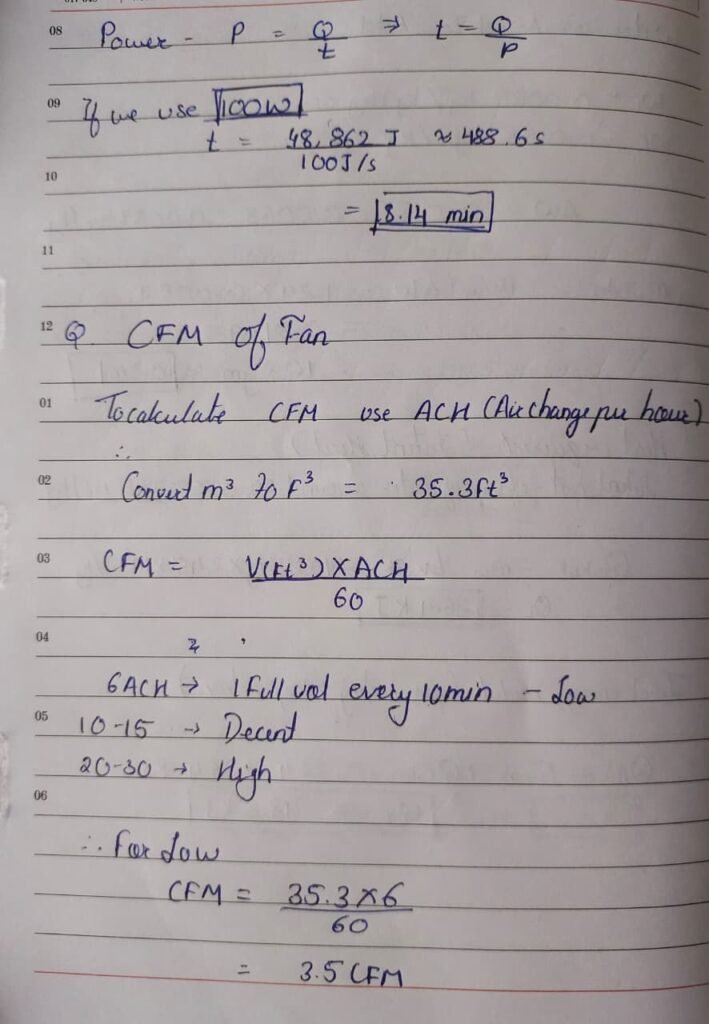 08 Power - P = Q/t ⇒ t = Q/P
09 If we use 100W
t = 48,862 J / 100J/s ≈ 488.6s
10
= 8.14 min
11
12 Q CFM of Fan
01 To calculate CFM use ACH (Air change per hour)
∴
02 Convert m³ to F³ = 35.3ft³
03 CFM = V(Ft³) X ACH / 60
04
6ACH → 1 Full vol every 10min - Low
05 10-15 → Decent
20-30 → High
06
∴ For Low
CFM = 35.3 X 6 / 60
= 3.5 CFM